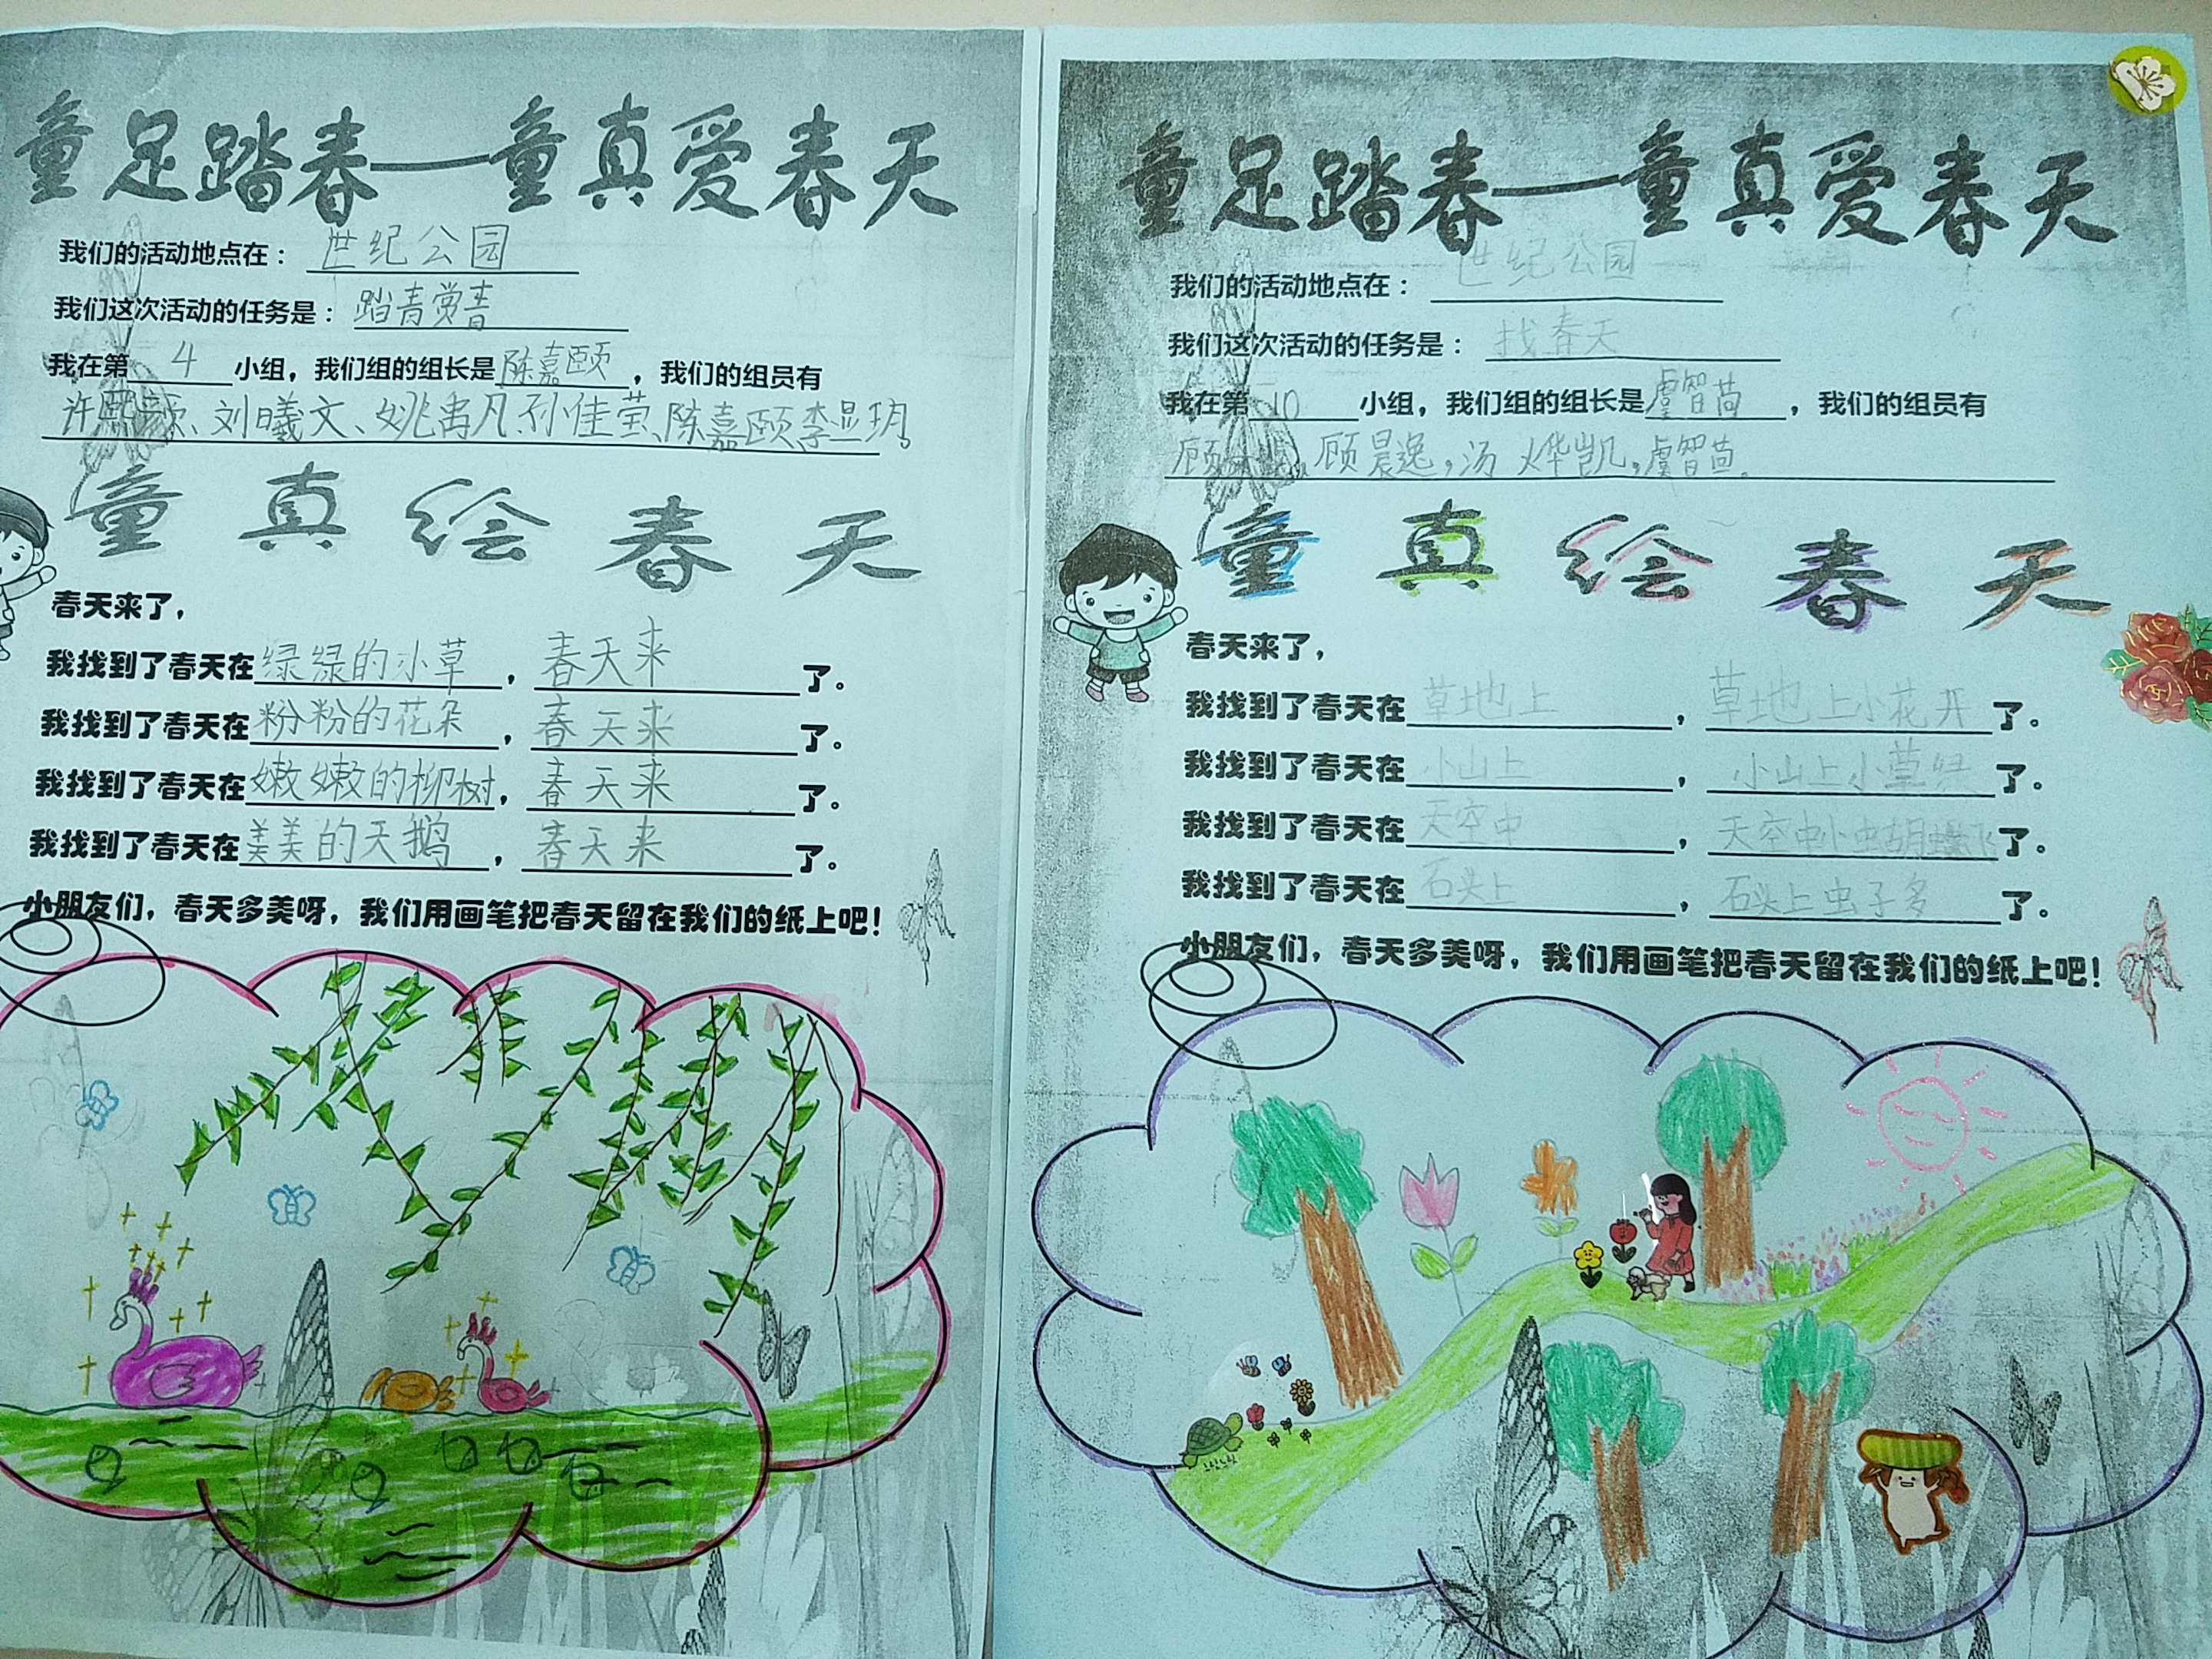 童足踏春——童真爱春天
我们的活动地点在：世纪公园
我们这次活动的任务是：踏青赏春
我在第 4 小组，我们组的组长是陈嘉颐，我们的组员有
许熙颜、刘曦文、姚禹凡、孙佳莹、陈嘉颐、李显玥。
童真绘春天
春天来了，
我找到了春天在绿绿的小草，春天来了。
我找到了春天在粉粉的花朵，春天来了。
我找到了春天在嫩嫩的柳树，春天来了。
我找到了春天在美美的天鹅，春天来了。
小朋友们，春天多美呀，我们用画笔把春天留在我们的纸上吧！
童足踏春——童真爱春天
我们的活动地点在：世纪公园
我们这次活动的任务是：找春天
我在第 10 小组，我们组的组长是虞智茴，我们的组员有
顾，顾晨逸，汤烨凯，虞智茴。
童真绘春天
春天来了，
我找到了春天在草地上，草地上小花开了。
我找到了春天在小山上，小山上小草绿了。
我找到了春天在天空中，天空中小虫胡蝶飞了。
我找到了春天在石头上，石头上虫子多了。
小朋友们，春天多美呀，我们用画笔把春天留在我们的纸上吧！